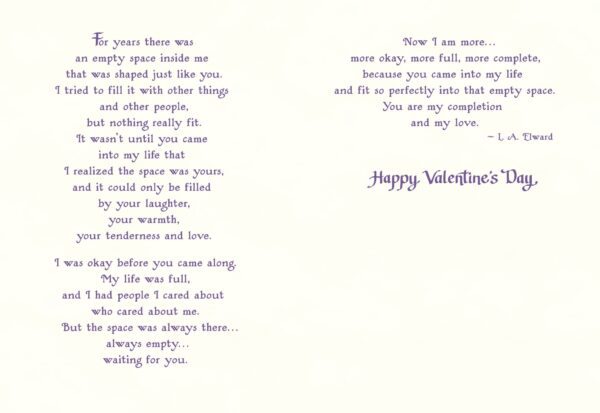 For years there was
an empty space inside me
that was shaped just like you.
I tried to fill it with other things
and other people,
but nothing really fit.
It wasn't until you came
into my life that
I realized the space was yours,
and it could only be filled
by your laughter,
your warmth,
your tenderness and love.
I was okay before you came along.
My life was full,
and I had people I cared about
who cared about me.
But the space was always there...
always empty...
waiting for you.
Now I am more...
more okay, more full, more complete,
because you came into my life
and fit so perfectly into that empty space.
You are my completion
and my love.
– L. A. Elward
Happy Valentine's Day